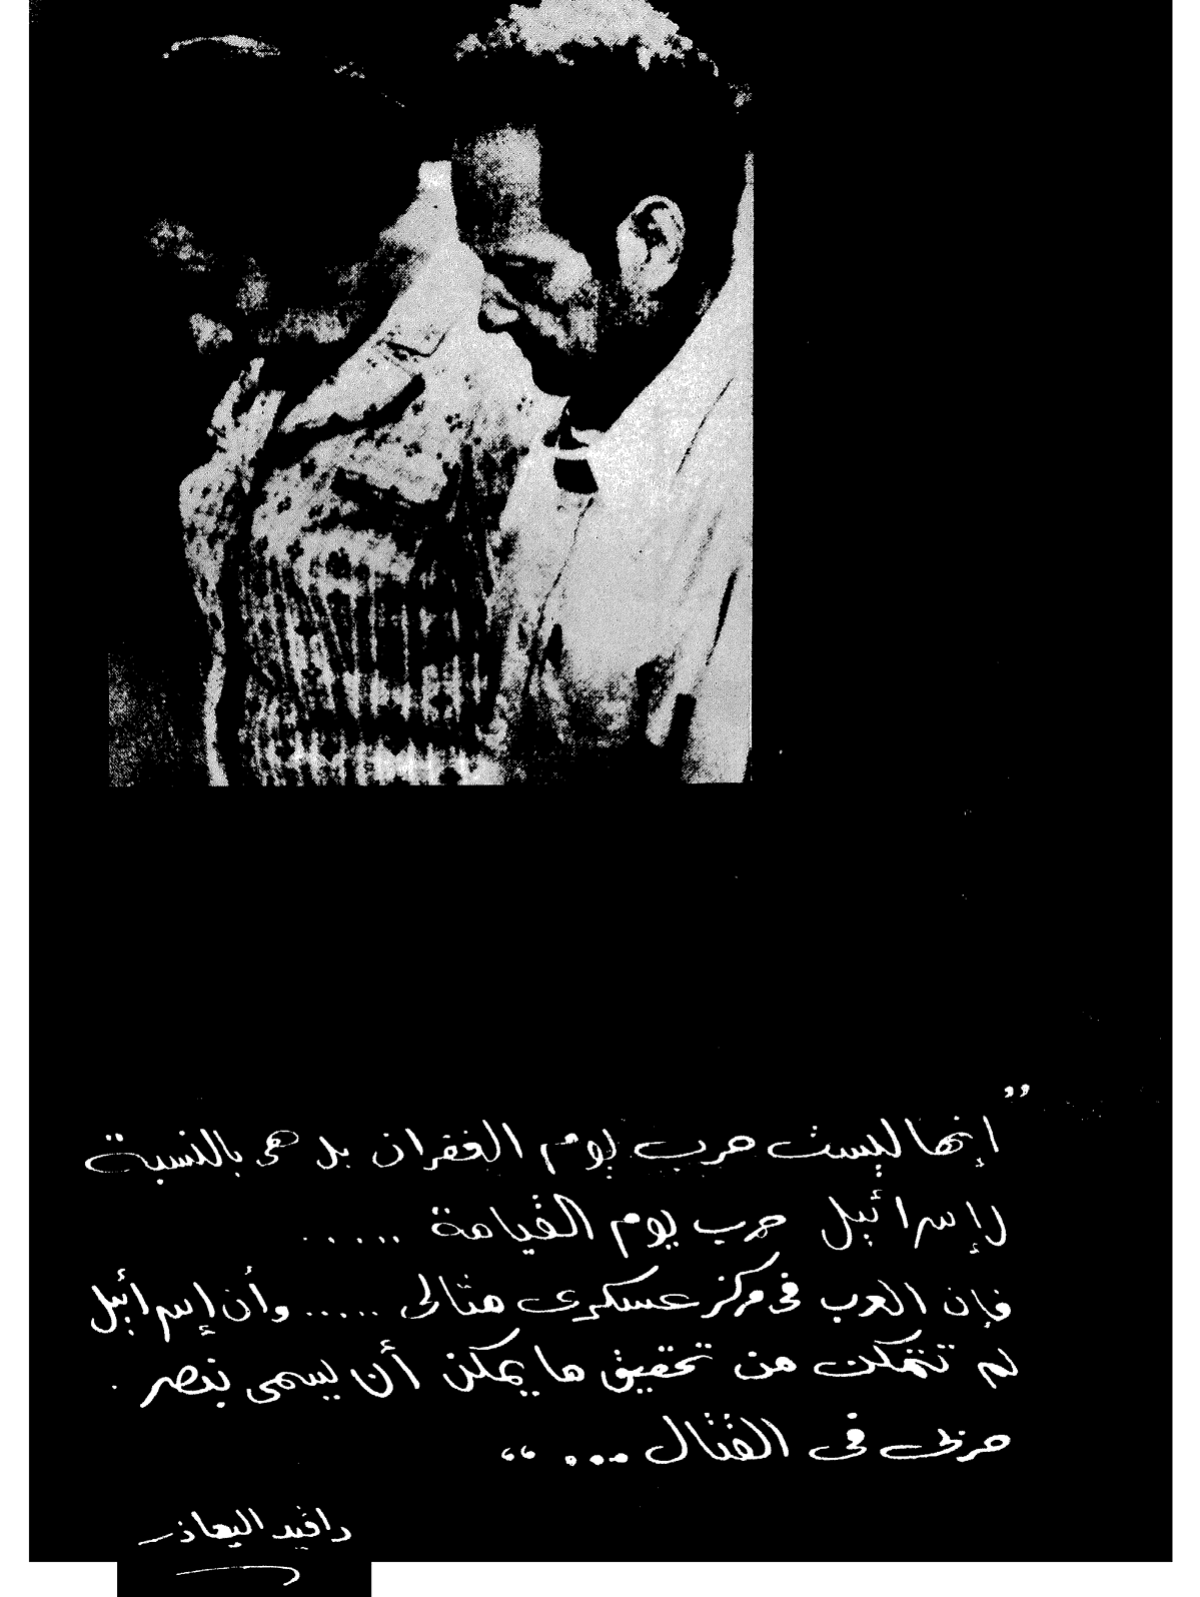 ”إنها ليست حرب يوم الغفران بل هى بالنسبة
لإسرائيل حرب يوم القيامة .....
فإن العرب فى مركز عسكرى مثالى ..... وأن إسرائيل
لم تتمكن من تحقيق ما يمكن أن يسمى بنصر
حربى فى القتال ... “
داڤيد اليعازر